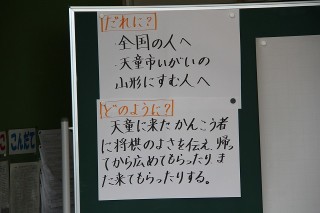 だれに?
・全国の人へ
・天童市いがいの
山形にすむ人へ
どのように?
天童に来たかんこう者
に将棋のよさを伝え、帰っ
てから広めてもらったり、ま
た来てもらったりする。
こんだて